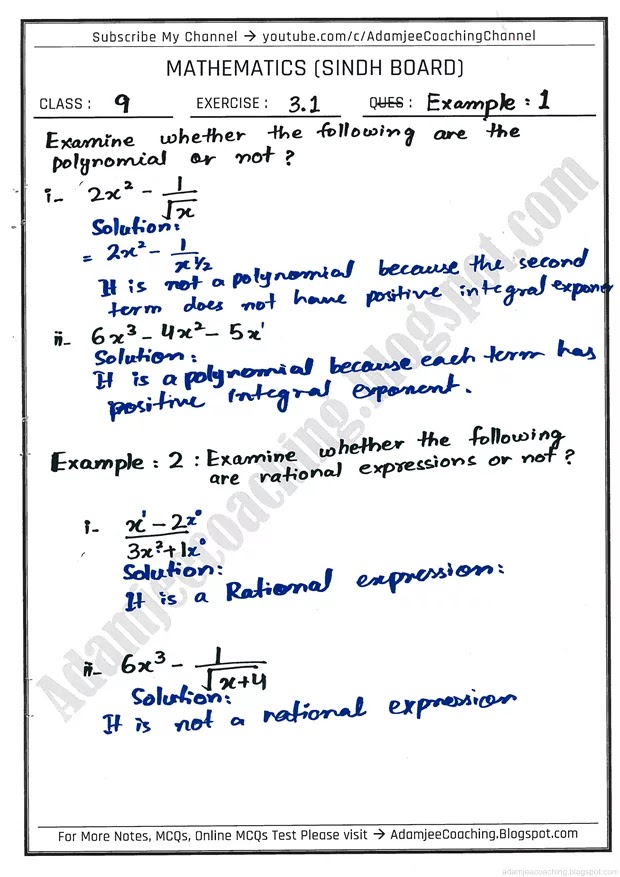 Subscribe My Channel → youtube.com/c/AdamjeeCoachingChannel
MATHEMATICS (SINDH BOARD)
CLASS : 9 EXERCISE : 3.1 QUES : Example : 1
Examine whether the following are the
polynomial or not ?
i- 2x² - 1/√x
Solution:
= 2x² - 1/x^1/2
It is not a polynomial because the second
term does not have positive integral exponen
ii- 6x³ - 4x² - 5x¹
Solution:
It is a polynomial because each term has
positive integral exponent.
Example : 2 : Examine whether the following
are rational expressions or not ?
i- x¹ - 2x⁰ / 3x² + 1x⁰
Solution:
It is a Rational expression:
ii- 6x³ - 1/√x+4
Solution:
It is not a rational expression
For More Notes, MCQs, Online MCQs Test Please visit → AdamjeeCoaching.Blogspot.com
Adamjeecoaching.blogspot.com
adamjeecoaching.blogspot.com